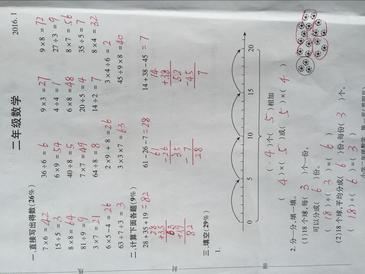 二年级数学 2016.1
一.直接写出得数(26%)
7×6= 42 36÷6= 6 9×3= 27 9×8= 72
15÷5= 3 6×9= 54 4÷4= 27÷3= 9
8×8= 40÷8= 5 6×8= 48 8×7= 56
81÷9= 9 7×7= 49 20÷5= 4 35÷5= 7
3×7= 21 64÷8= 8 14÷2= 7 8×4= 32
6×5-4= 26 2×9+8= 26 3×4÷6= 2
63÷7÷3= 3 3×3×7= 63 45÷9×8= 40
二.计算下面各题(9%)
28+35+19= 82 61-26-7= 28 14+38-45= 7
三.填空(29%)
1.
0 5 10 15 20
( 4 )个( 5 )相加
( 4 )×( 5 )或( 5 )×( 4 )
2.分一分,填一填。
(1)18个球,每( 3 )个一份,
可以分成( 6 )份。
( 18 )÷( 3 )=( 6 )
(2)18个球,平均分成( 6 )份,每份( 3 )个。
( 18 )÷( 6 )=( 3 )